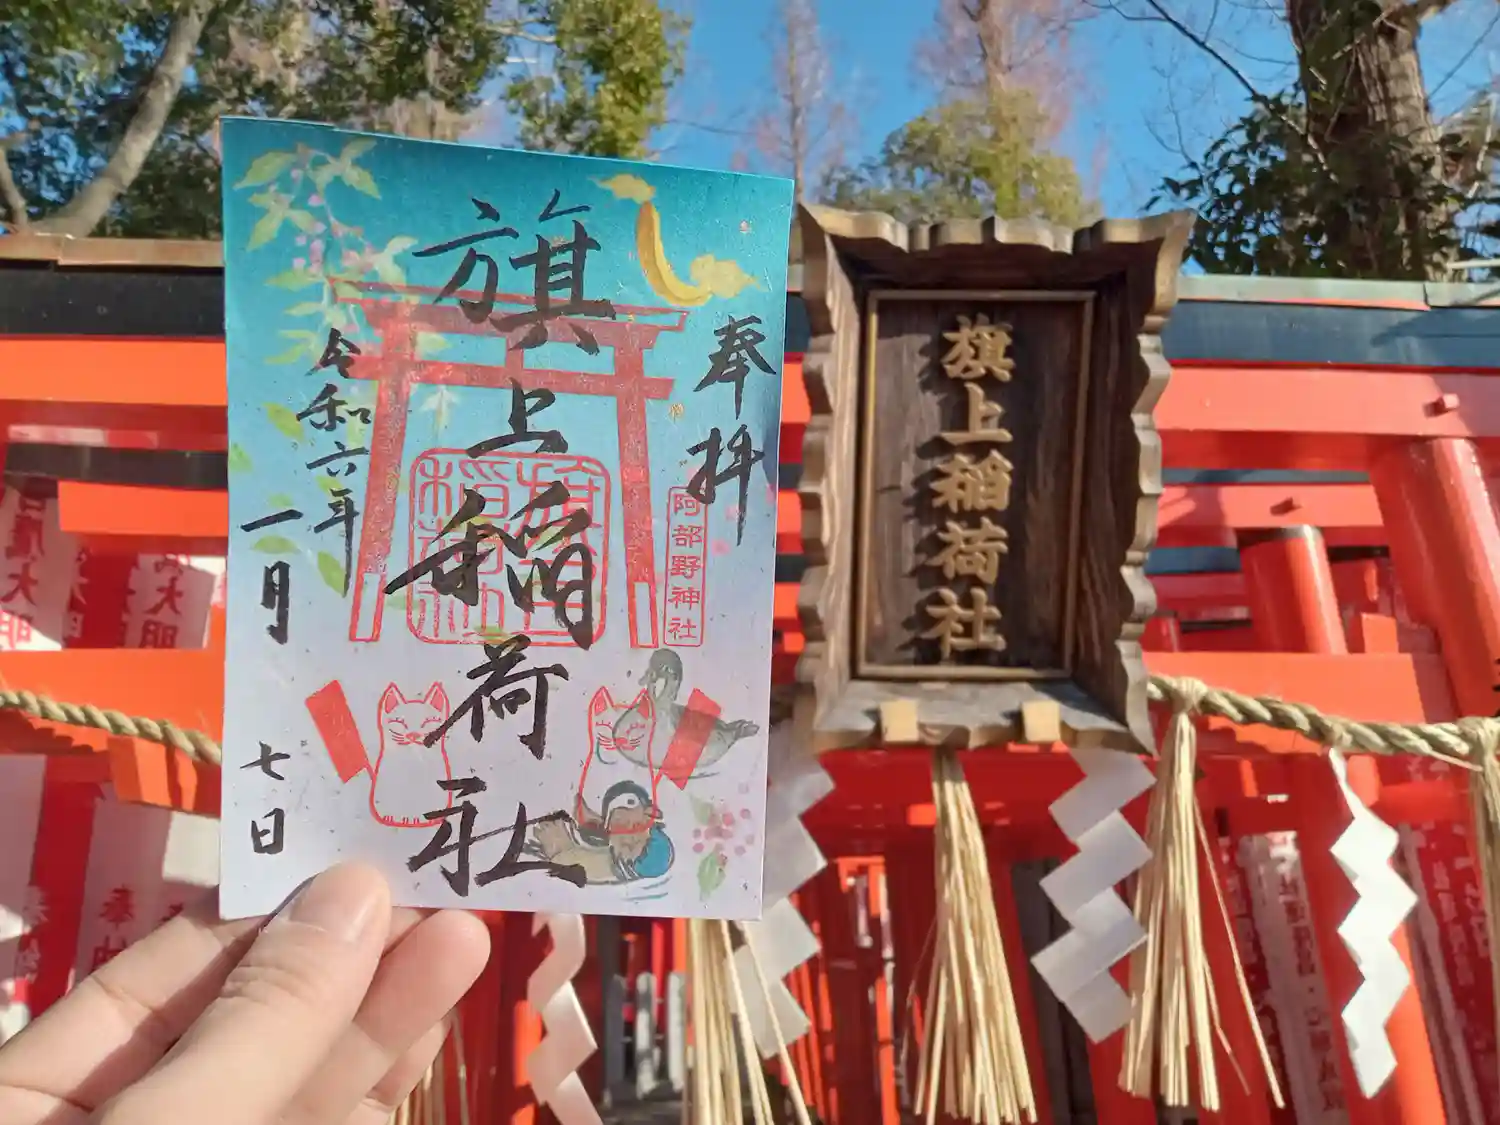 奉拝
旗上稲荷社
令和六年
一月
七日
阿部野神社
旗上稲荷社
旗上稲荷社
大明
大明
奉